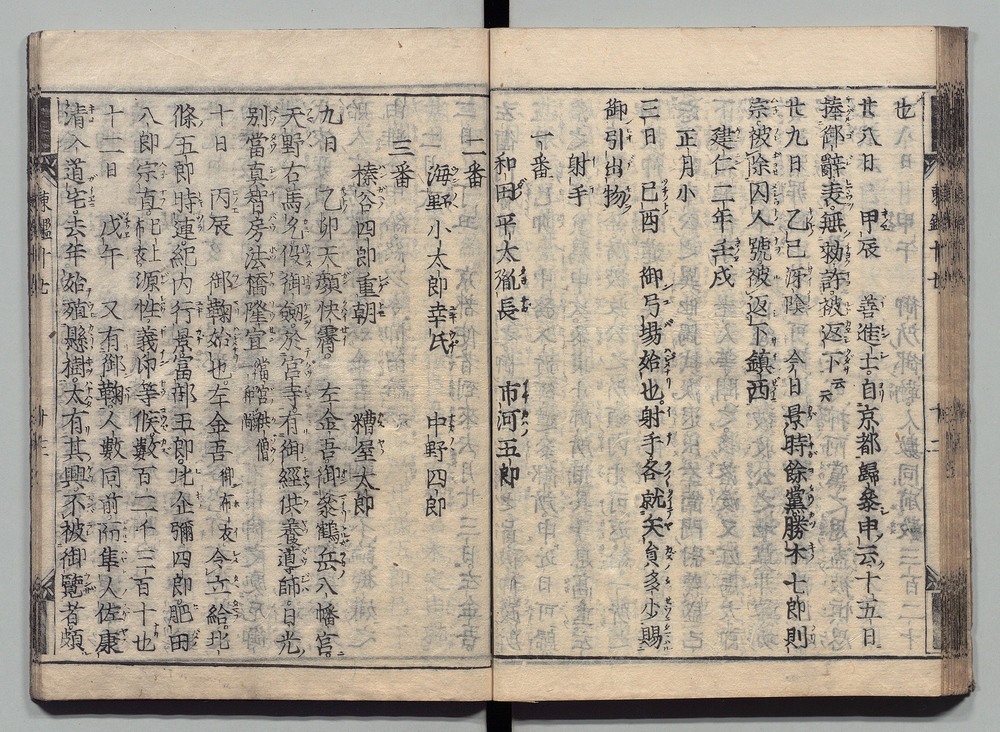 也
廿八日 甲辰 善進士自京都歸參申云十五日
捧御辭表無勅許被返下云云
廿九日 乙巳 陰 今日景時餘黨勝木七郎則
宗被除囚人號被返下鎮西
建仁二年壬戌
正月小
三日 己酉 御弓場始也射手各就矢員多少賜
御引出物
射手
一番
和田平太胤長 市河五郎
二番
海野小太郎幸氏 中野四郎
三番
榛谷四郎重朝 糟屋太郎
九日 乙卯天顏快霽 左金吾御參鶴岳八幡宮
天野右馬允役御劔於宮寺有御經供養導師日光
別當真智房法橋隆宣 供僧
十日 丙辰 御鞠始也左金吾御布衣令立給北
條五郎時連紀内行景富部五郎比企彌四郎肥田
八郎宗直已上布衣源性義印等候數百二千三百十也
十二日 戊午 又有御鞠人數同前而隼人佐康
清入道宅去年始殖懸樹太有其興不被御覽者頗
東鑑十七